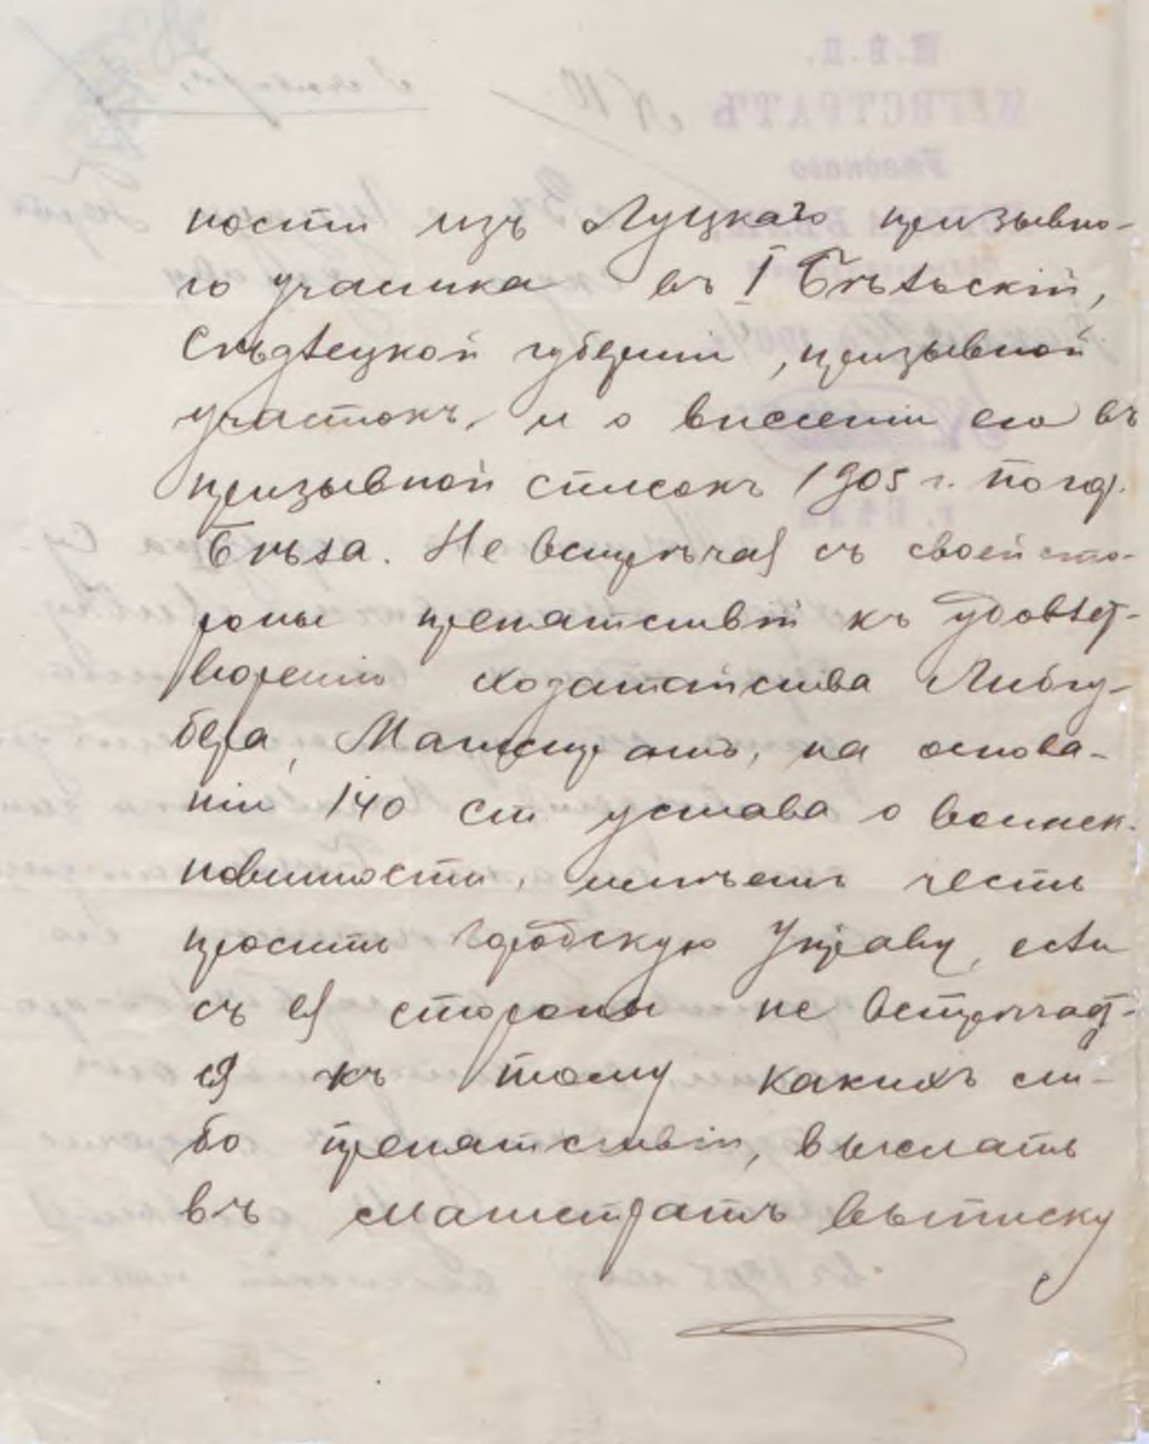 ности изъ Луцкаго призывно-
го участка въ I Бѣльскій,
Сѣдлецкой губерніи, призывной
участокъ, и о внесеніи его въ
призывной списокъ 1905 г. по гор.
Бѣла. Не встрѣчая съ своей сто-
роны препятствій къ удовлет-
воренію ходатайства Либгу-
бера, Магистратъ, на основа-
ніи 140 ст устава о воинск.
повинности, имѣетъ честь
просить Городскую Управу, если
съ ея стороны не встрѣчает-
ся къ тому какихъ ли-
бо препятствій, выслать
въ Магистратъ выписку